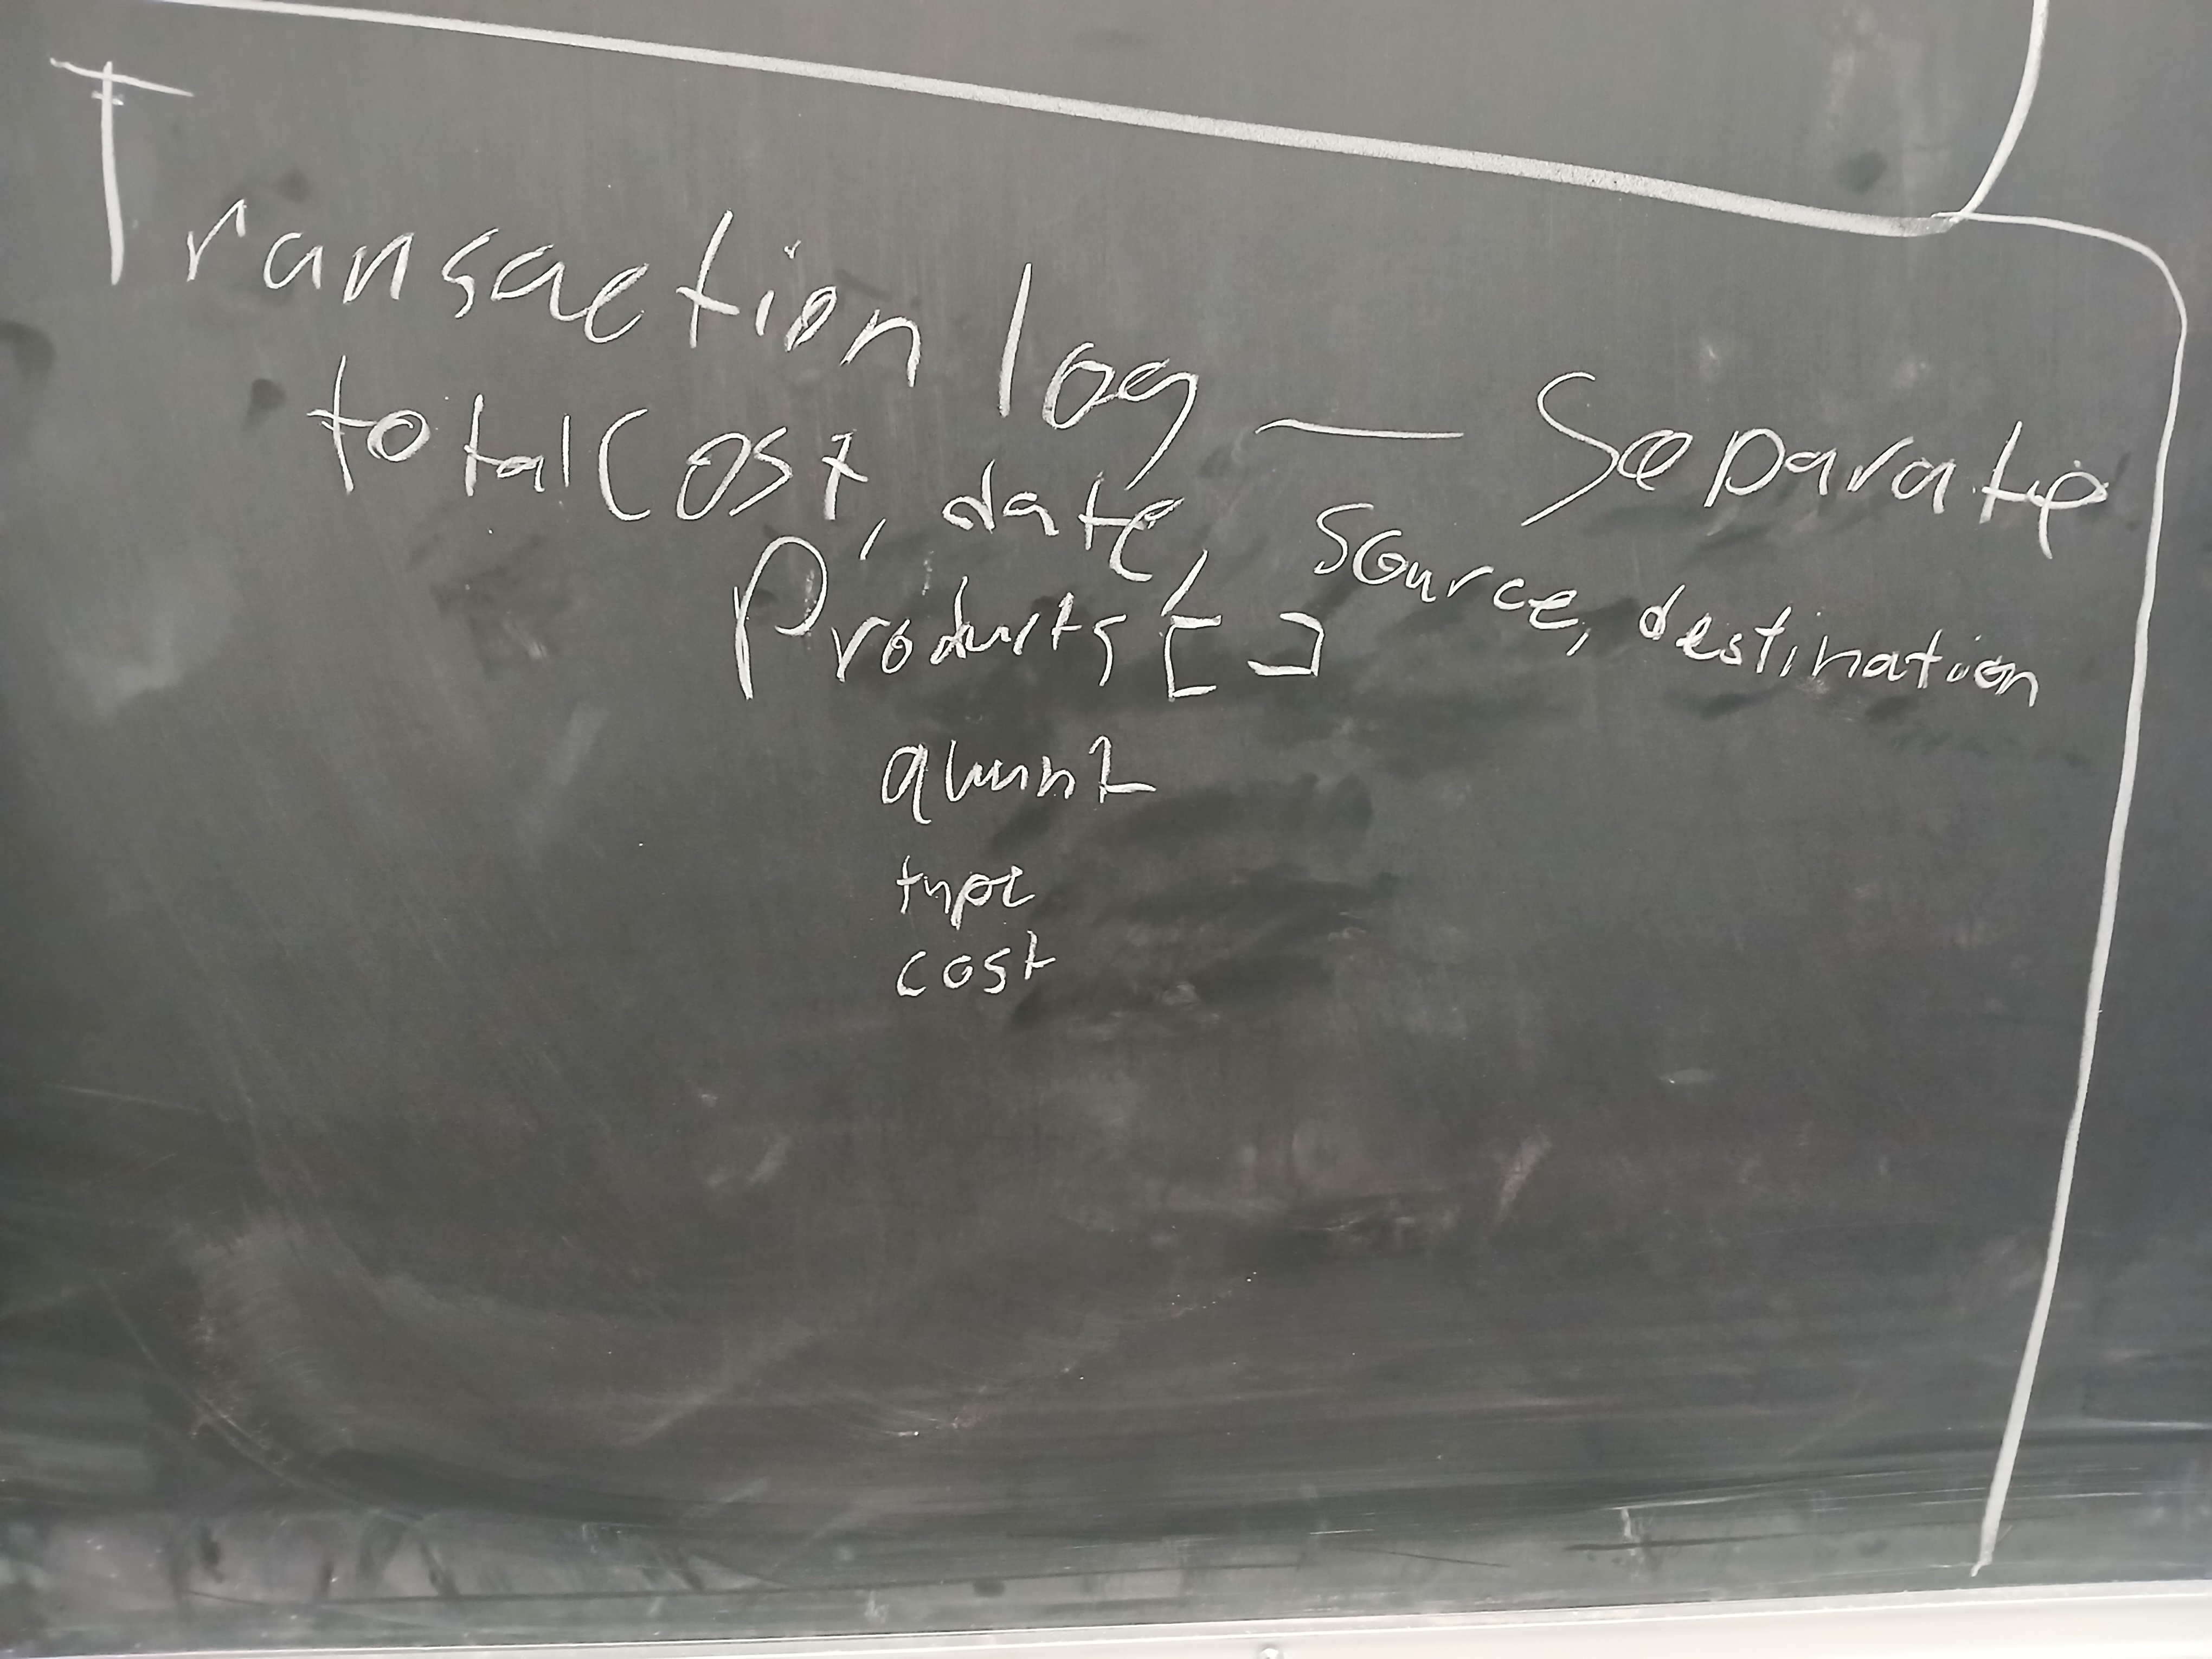 Transaction log — Separate
totalCost, date, source, destination
Products []
quant
type
cost